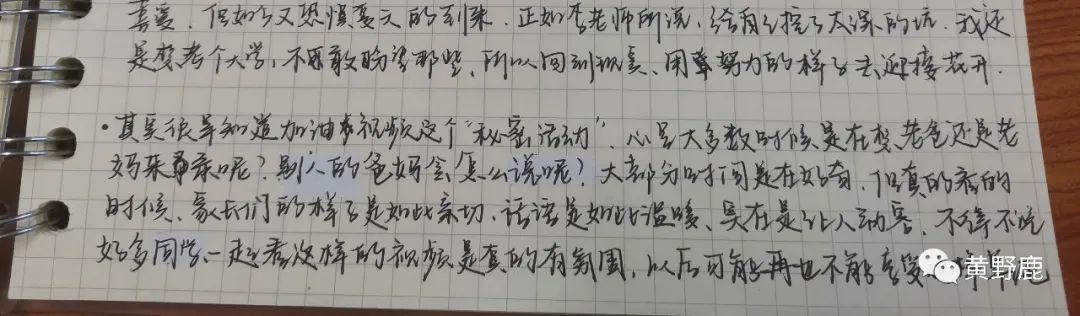 喜爱,但如今又恐惧夏天的到来。正如李老师所说,给自己挖了太深的坑。我还
是想考个大学,不愿敢盼望那些,所以回到现实、用努力的样子去迎接花开.
·其实很早知道加油声视频这个“秘密活动”,心里大多数时候是在想老爸还是老
妈来录呢?别人的爸妈会怎么说呢?大部分时间是在好奇,但真的看的
时候、家长们的样子是如此亲切,话语是如此温暖、实在是让人动容,不得不说
好多同学一起看这样的视频是真的有氛围,以后可能也不能享受
黄野鹿